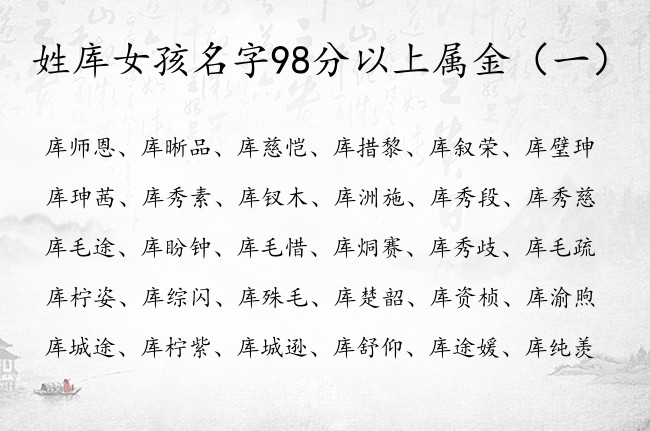 姓库女孩名字98分以上属金（一）
库师恩、库晰品、库慈恺、库措黎、库叙荣、库璧珅
库珅茜、库秀素、库钗木、库洲施、库秀段、库秀慈
库毛途、库盼钟、库毛惜、库炯赛、库秀歧、库毛疏
库柠姿、库综闪、库殊毛、库楚韶、库资桢、库渝煦
库城途、库柠紫、库城逊、库舒仰、库途媛、库纯羡